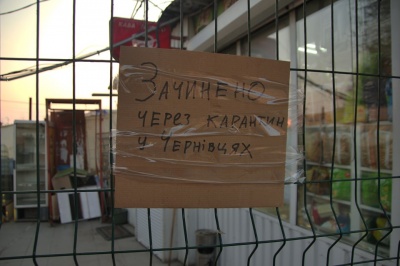 ЗАЧИНЕНО
ЧЕРЕЗ КАРАНТИН
У ЧЕРНІВЦЯХ